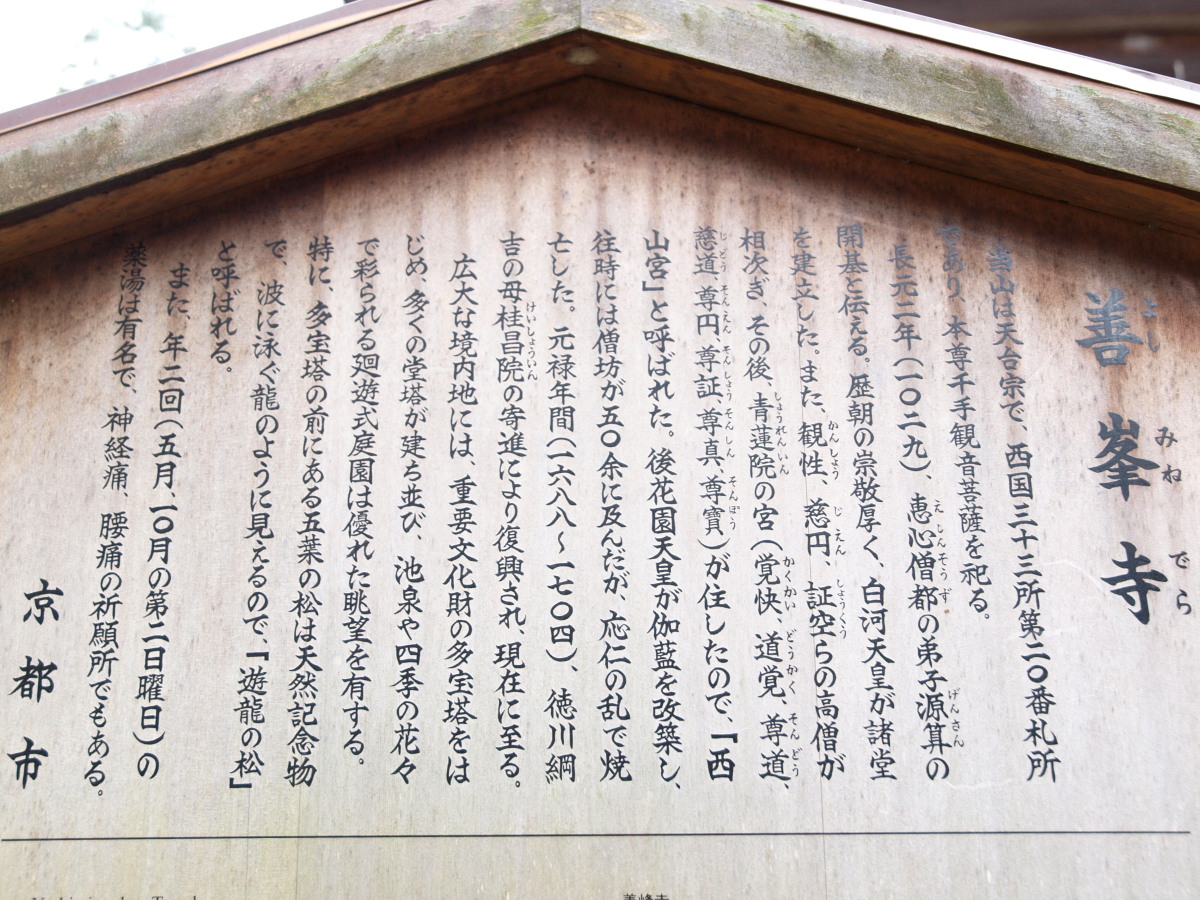 善峯寺
よしみねでら
当山は天台宗で、西国三十三所第二〇番札所
であり、本尊千手観音菩薩を祀る。
長元二年(一〇二九)、恵心僧都の弟子源算の
えしんそうず
げんさん
開基と伝える。歴朝の崇敬厚く、白河天皇が諸堂
を建立した。また、観性、慈円、証空らの高僧が
かんしょう
じえん
しょうくう
相次ぎ、その後、青蓮院の宮(覚快、道覚、尊道、
しょうれんいん
かくかい
どうかく
そんどう
慈道、尊円、尊証、尊真、尊寶)が住したので、「西
じどう
そんえん
そんしょう
そんしん
そんぽう
山宮」と呼ばれた。後花園天皇が伽藍を改築し、
往時には僧坊が五〇余に及んだが、応仁の乱で焼
亡した。元禄年間(一六八八~一七〇四)、徳川綱
吉の母桂昌院の寄進により復興され、現在に至る。
けいしょういん
広大な境内地には、重要文化財の多宝塔をは
じめ、多くの堂塔が建ち並び、池泉や四季の花々
で彩られる廻遊式庭園は優れた眺望を有する。
特に、多宝塔の前にある五葉の松は天然記念物
で、波に泳ぐ龍のように見えるので、「遊龍の松」
と呼ばれる。
また、年二回(五月、一〇月の第二日曜日)の
薬湯は有名で、神経痛、腰痛の祈願所でもある。
京都市